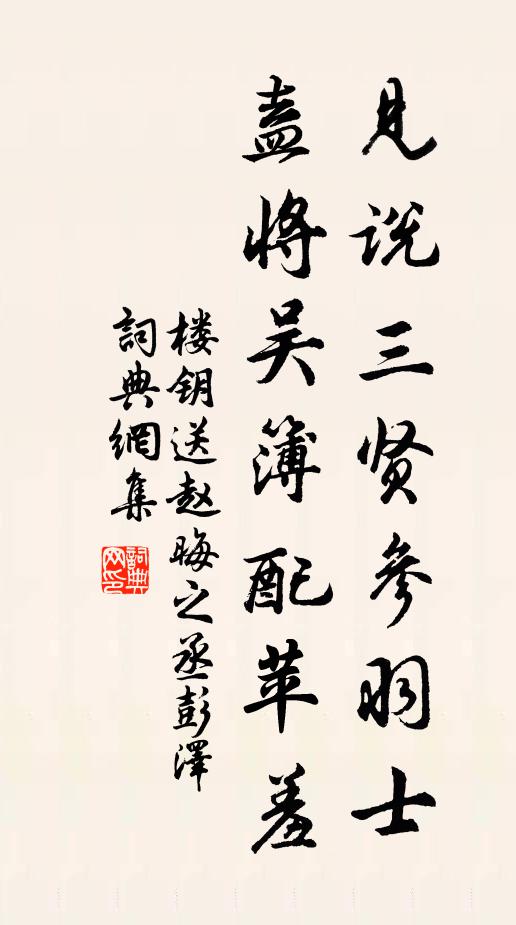 见说三贤参羽士
盍将吴簿配苹羞
楼钥送赵晦之丞彭泽
詞典網集
詞典
网印